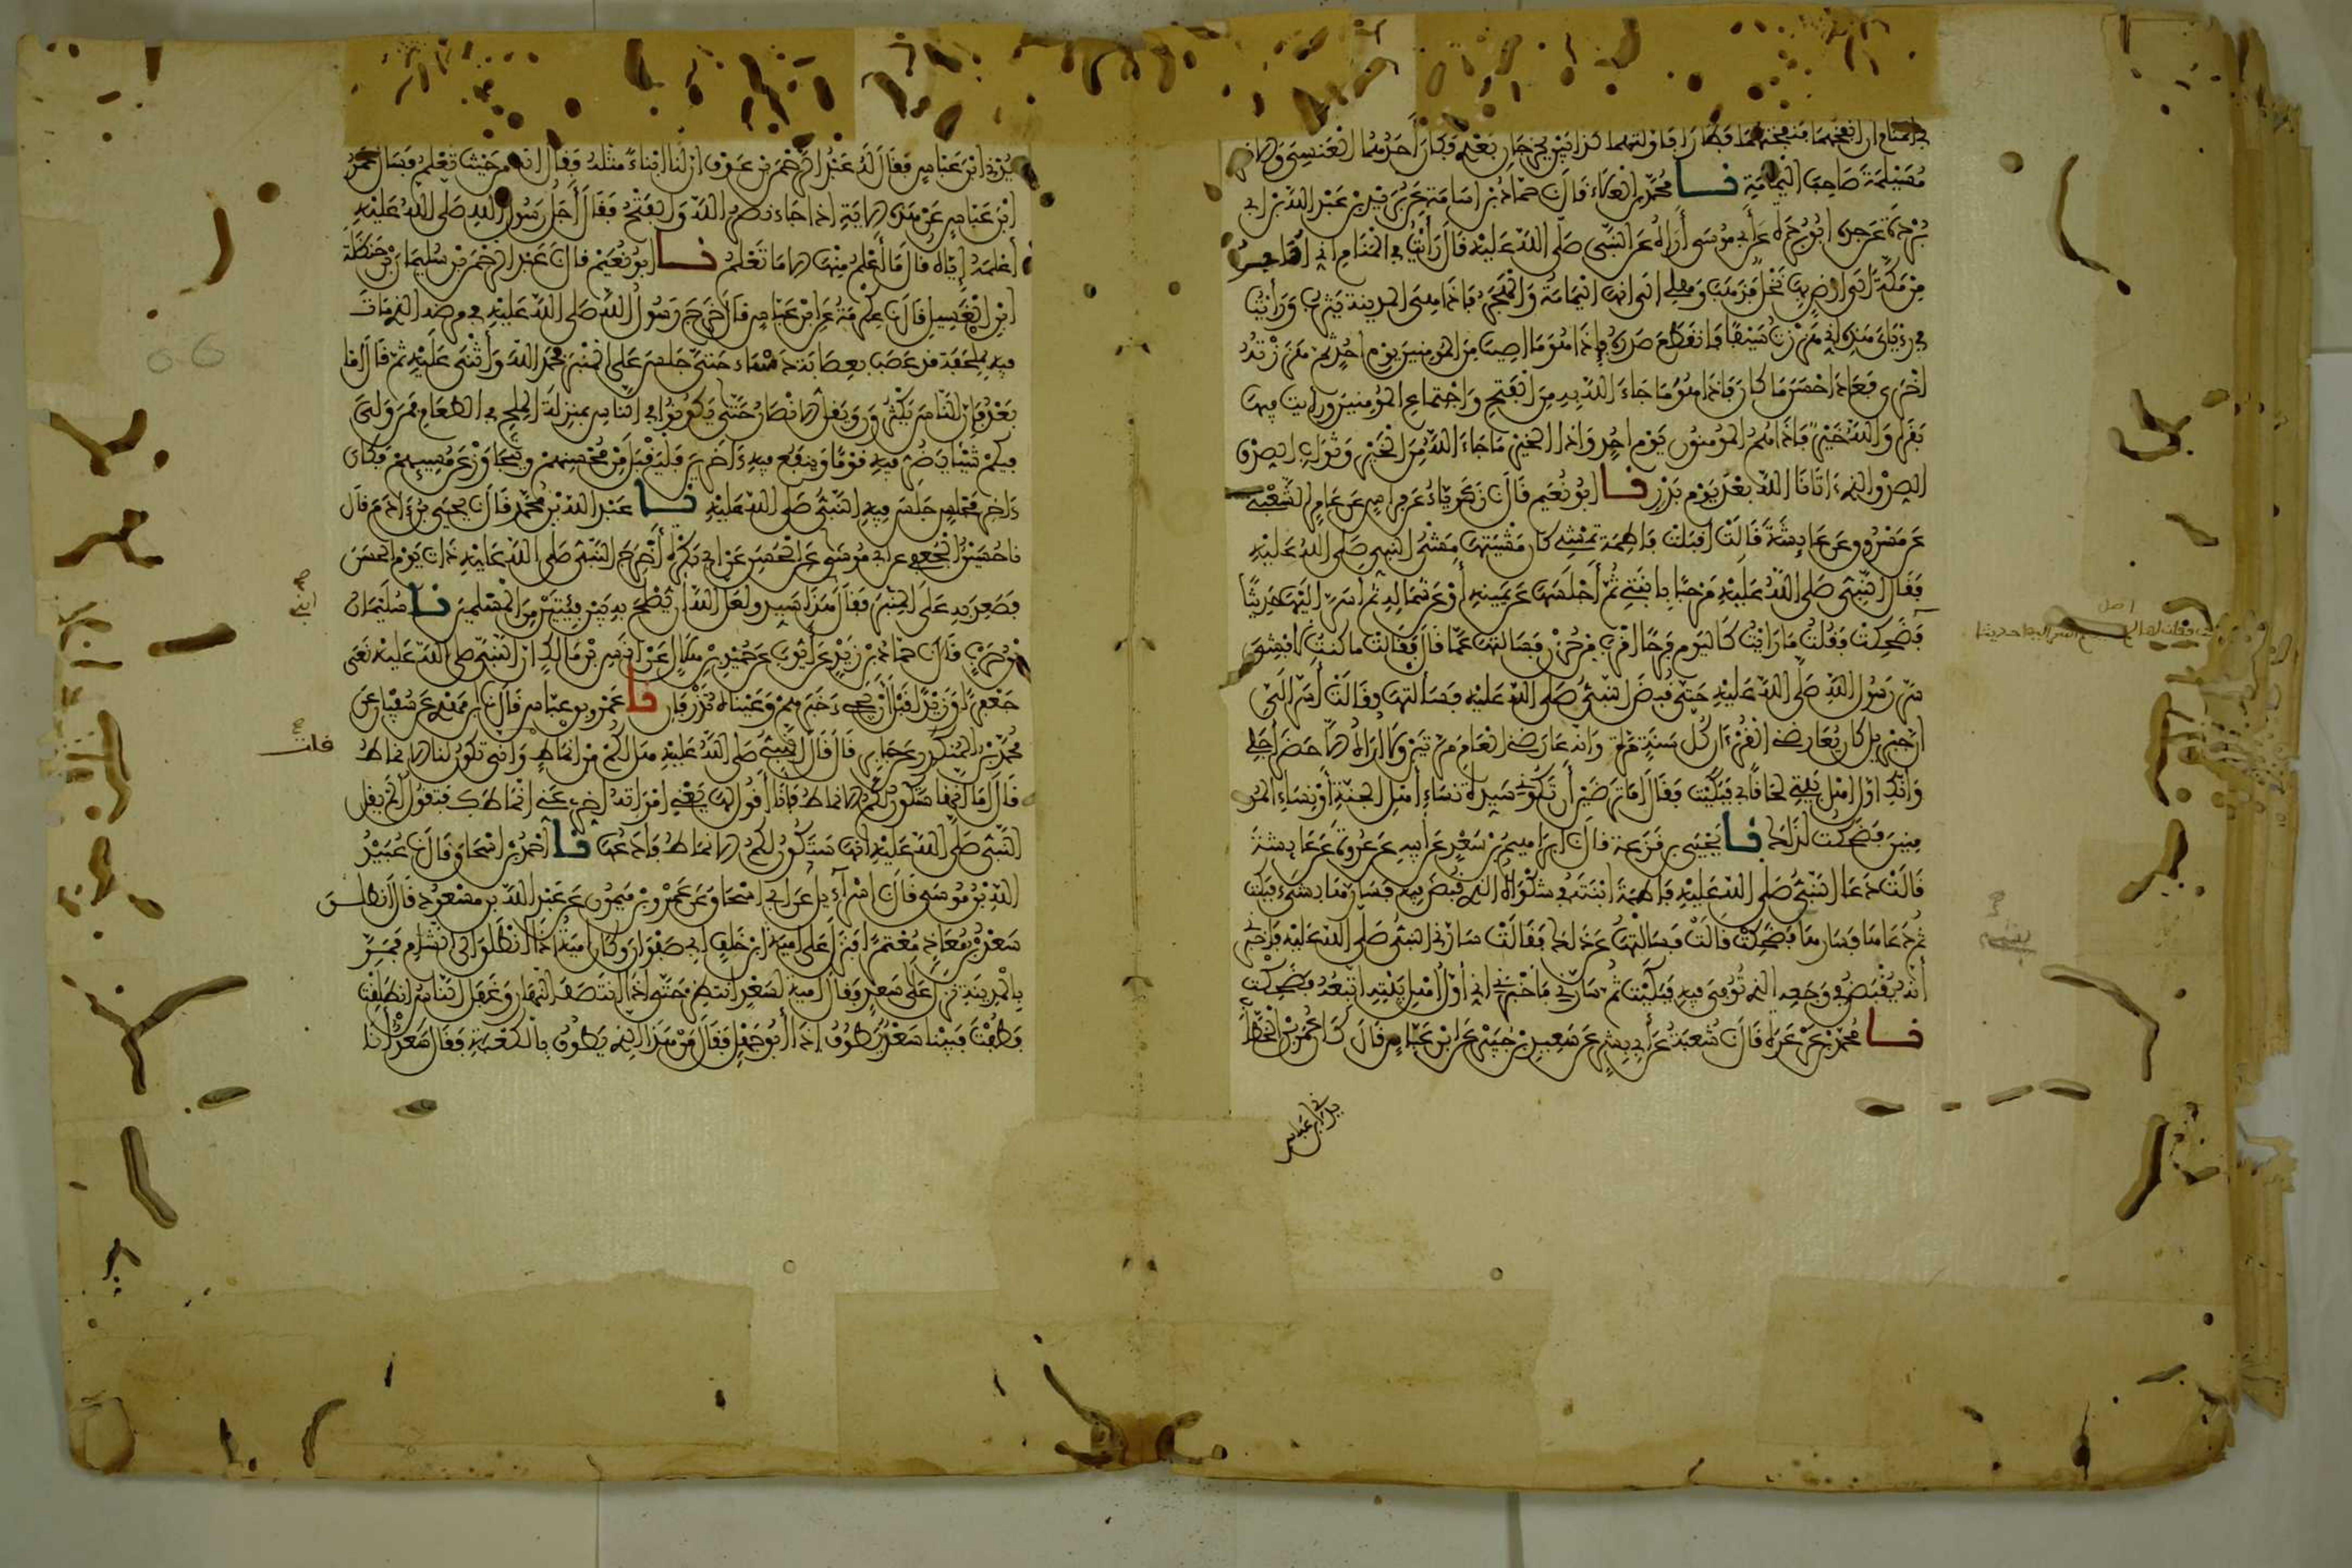 في المنام ان انفخهما فنفختهما فطارا فاولتهما كذابين يخرجان بعدي فكان أحدهما العنسي والاخر
مسيلمة صاحب اليمامة نا محمد بن العلاء قال نا حماد بن اسامة عن بريد بن عبد الله بن ابي
بردة عن جده ابي بردة عن أبي موسى أراه عن النبي صلى الله عليه قال رأيت في المنام اني أهاجر
من مكة الى ارض بها نخل فذهب وهلي الى انها اليمامة والهجر فاذا هي المدينة يثرب ورأيت
في رؤياي هذه اني هززت سيفا فانقطع صدره فإذا هو ما اصيب من المومنين يوم احد ثم هززته
اخرى فعاد احسن ما كان فاذا هو ما جاء الله به من الفتح واجتماع المومنين ورايت فيها
بقرا والله خير فاذا هم المومنون يوم احد واذا الخير ما جاء الله من الخير وثواب الصدق
الصدق الذي اتانا الله بعد يوم بدر نا ابو نعيم قال نا زكرياء عن فراس عن عامر الشعبي
عن مسروق عن عايشة قالت اقبلت فاطمة تمشي كان مشيتها مشي النبي صلى الله عليه
فقال النبي صلى الله عليه مرحبا يا ابنتي ثم أجلسها عن يمينه أو عن شماله ثم اسر اليها حديثا
فضحكت فقلت ما رايت كاليوم فرحا اقرب من حزن فسالتها عما قال فقالت ما كنت لافشي
سر رسول الله صلى الله عليه حتى قبض النبي صلى الله عليه فسالتها فقالت أسر الي
ان جبريل كان يعارضني القرءان كل سنة مرة وانه عارضني العام مرتين ولا اراه الا حضر أجلي
وانك اول اهل بيتي لحاقا بي فبكيت فقال اما ترضين أن تكوني سيدة نساء اهل الجنة أو نساء المو
منين فضحكت لذلك نا يحيى بن قزعة قال نا ابراهيم بن سعد عن أبيه عن عروة عن عايشة
قالت دعا النبي صلى الله عليه فاطمة ابنته في شكواه الذي قبض فيه فسارها بشيء فبكت
ثم دعاها فسارها فضحكت قالت فسالتها عن ذلك فقالت سارني النبي صلى الله عليه فاخبرني
أنه يقبض في وجعه الذي توفي فيه فبكيت ثم سارني فاخبرني اني أول أهل بيته اتبعه فضحكت
نا محمد بن عرعرة قال نا شعبة عن أبي بشر عن سعيد بن جبير عن ابن عباس قال كان عمر بن الخطاب
يدني ابن عباس
اصل
يدني ابن عباس فقال له عبد الرحمن بن عوف ان لنا ابناء مثله فقال انه من حيث تعلم فسال عمر
ابن عباس عن هذه الاية اذا جاء نصر الله والفتح فقال أجل رسول الله صلى الله عليه
أعلمه إياه قال ما أعلم منها الا ما تعلم نا ابو نعيم قال نا عبد الرحمن بن سليمان بن حنظلة
ابن الغسيل قال نا عكرمة عن ابن عباس قال خرج رسول الله صلى الله عليه في مرضه الذي مات
فيه بملحفة قد عصب بعصابة دسماء حتى جلس على المنبر فحمد الله وأثنى عليه ثم قال اما
بعد فان الناس يكثرون ويقل الانصار حتى يكونوا في الناس بمنزلة الملح في الطعام فمن ولي
منكم شيئا يضر فيه قوما وينفع فيه ءاخرين فليقبل من محسنهم ويتجاوز عن مسيهم فكان
ءاخر مجلس جلس فيه النبي صلى الله عليه نا عبد الله بن محمد قال نا يحيى بن ءادم قال
نا حسين الجعفي عن ابي موسى عن الحسن عن ابي بكرة أخرج النبي صلى الله عليه ذات يوم الحسن
فصعد به على المنبر فقال ابني هذا سيد ولعل الله أن يصلح به بين فئتين من المسلمين نا سليمان
بن حرب قال نا حماد بن زيد عن أيوب عن حميد بن هلال عن انس بن مالك ان النبي صلى الله عليه نعى
جعفرا وزيدا قبل أن يجيء خبرهم وعيناه تذرفان نا عمرو بن عباس قال نا ابن مهدي عن سفيان عن
محمد بن المنكدر عن جابر قال قال النبي صلى الله عليه هل لكم من انماط وانى تكون لنا الانماط
قال أما انها ستكون لكم الانماط فانا أقول لها يعني امراته اخري عني انماطك فتقول ألم يقل
النبي صلى الله عليه انها ستكون لكم الانماط فادعها نا أحمد بن اسحاق قال نا عبيد
الله بن موسى قال نا اسراءيل عن ابي اسحاق عن عمرو بن ميمون عن عبد الله بن مسعود قال انطلق
سعد بن معاذ معتمرا فنزل على امية ابن خلف ابي صفوان وكان امية اذا انطلق الى الشام فمر
بالمدينة نزل على سعد فقال امية لسعد انتظر حتى اذا انتصف النهار وغفل الناس انطلقت
فطفت فبينا سعد يطوف اذا أبو جهل فقال من هذا الذي يطوف بالكعبة فقال سعد أنا
قال